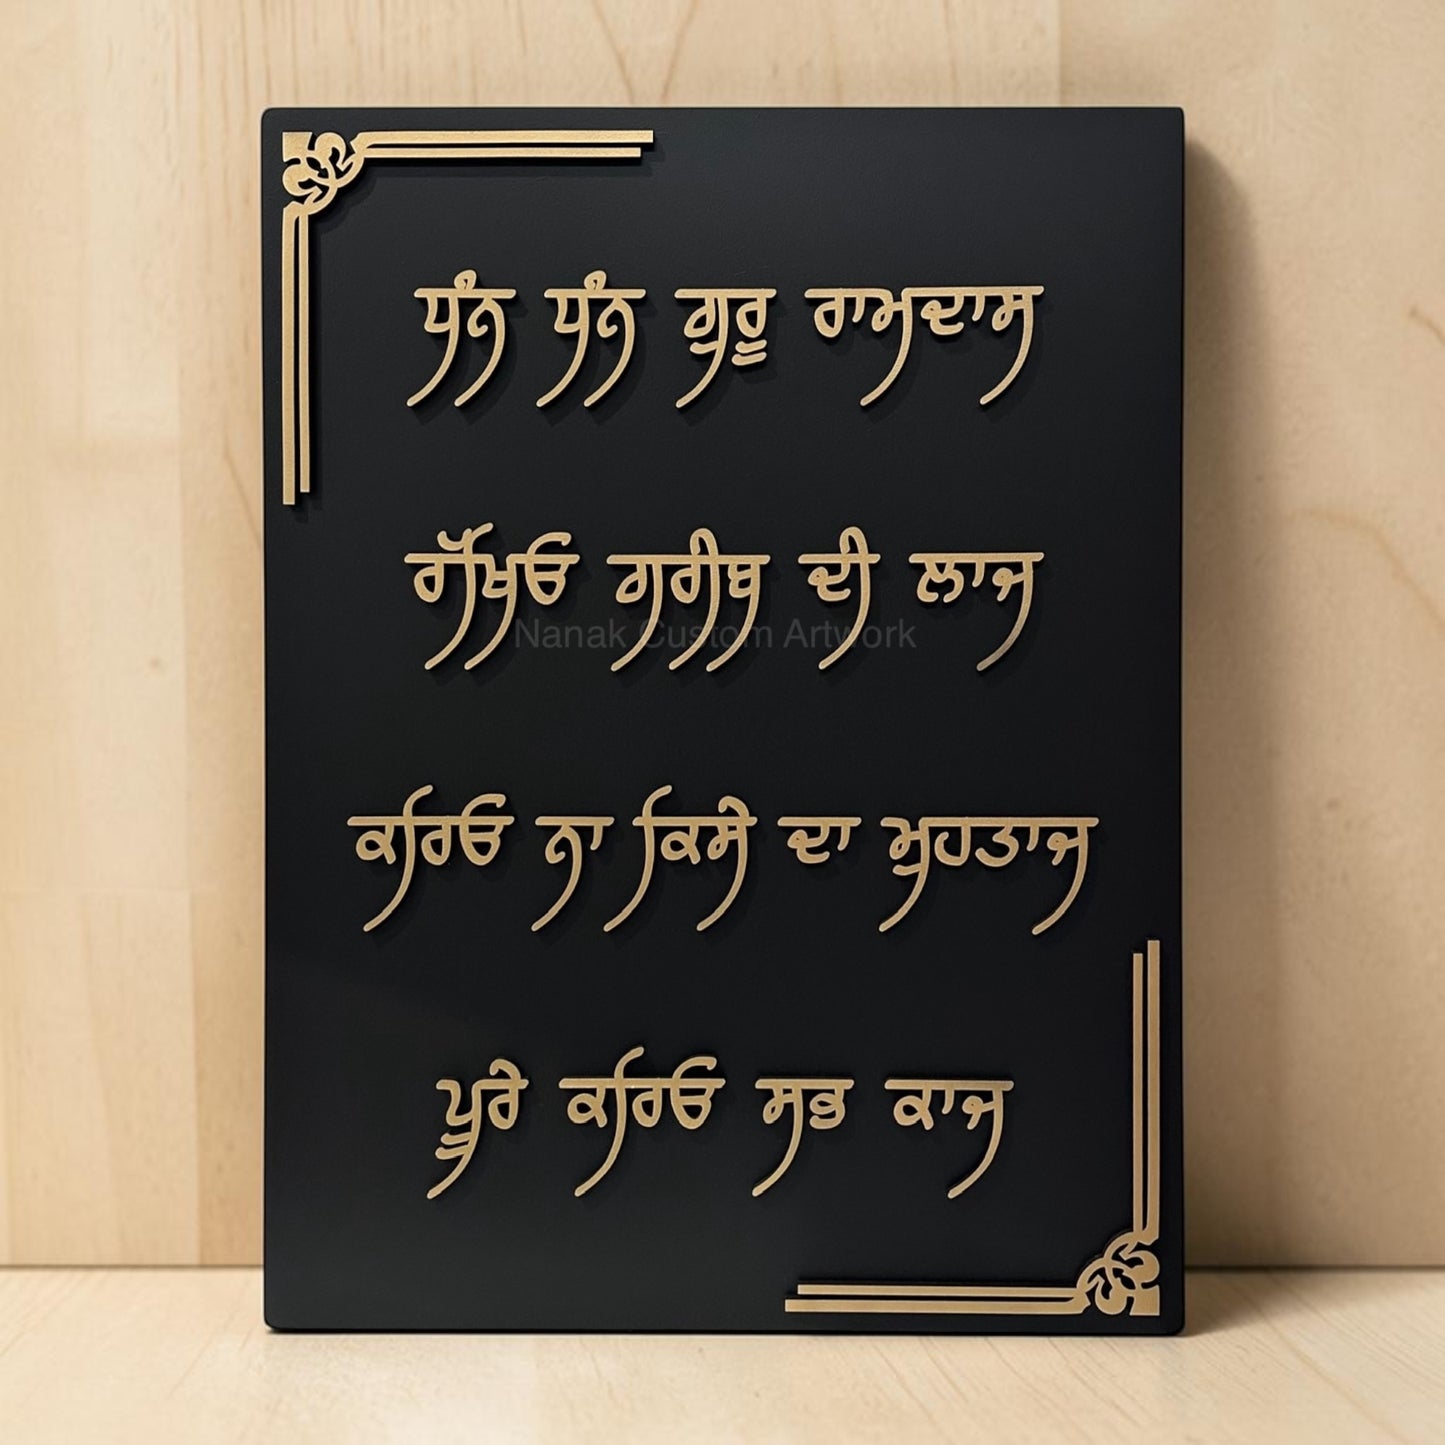 ਧੰਨ ਧੰਨ ਗੁਰੂ ਰਾਮਦਾਸ
ਰੱਖਿਓ ਗਰੀਬ ਦੀ ਲਾਜ
Nanak Custom Artwork
ਕਰਿਓ ਨਾ ਕਿਸੇ ਦਾ ਮੁਹਤਾਜ
ਪੂਰੇ ਕਰਿਓ ਸਭ ਕਾਜ